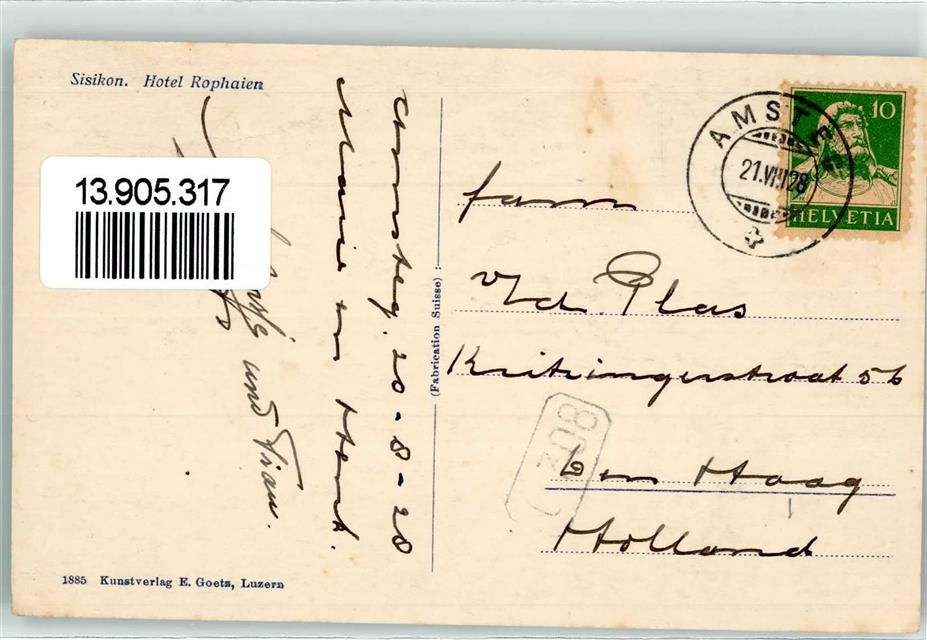 Sisikon. Hotel Rophaien
13.905.317
Amsteg, 20-8-28
und Frau.
(Fabrication Suisse)
1885 Kunstverlag E. Goetz, Luzern
AMSTEG
21.VIII.28
10
HELVETIA
Fam
v/d. Plas
Kritzingerstraat 56
den Haag
Holland